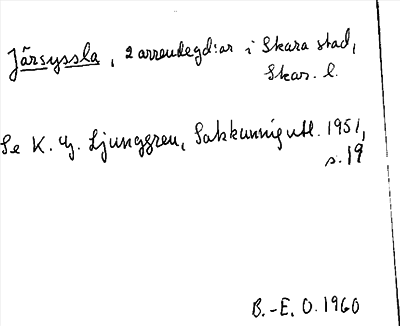 Järsyssla, 2 arrendegd:ar i Skara stad,
Skar. l.
Se K. G. Ljunggren, Sakkunnigutl. 1951,
s. 19
B.-E. O. 1960